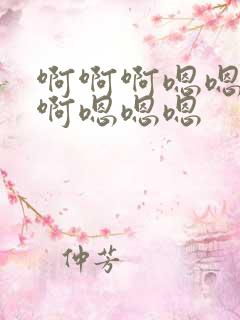 啊啊啊嗯嗯
啊嗯嗯嗯
仲芳